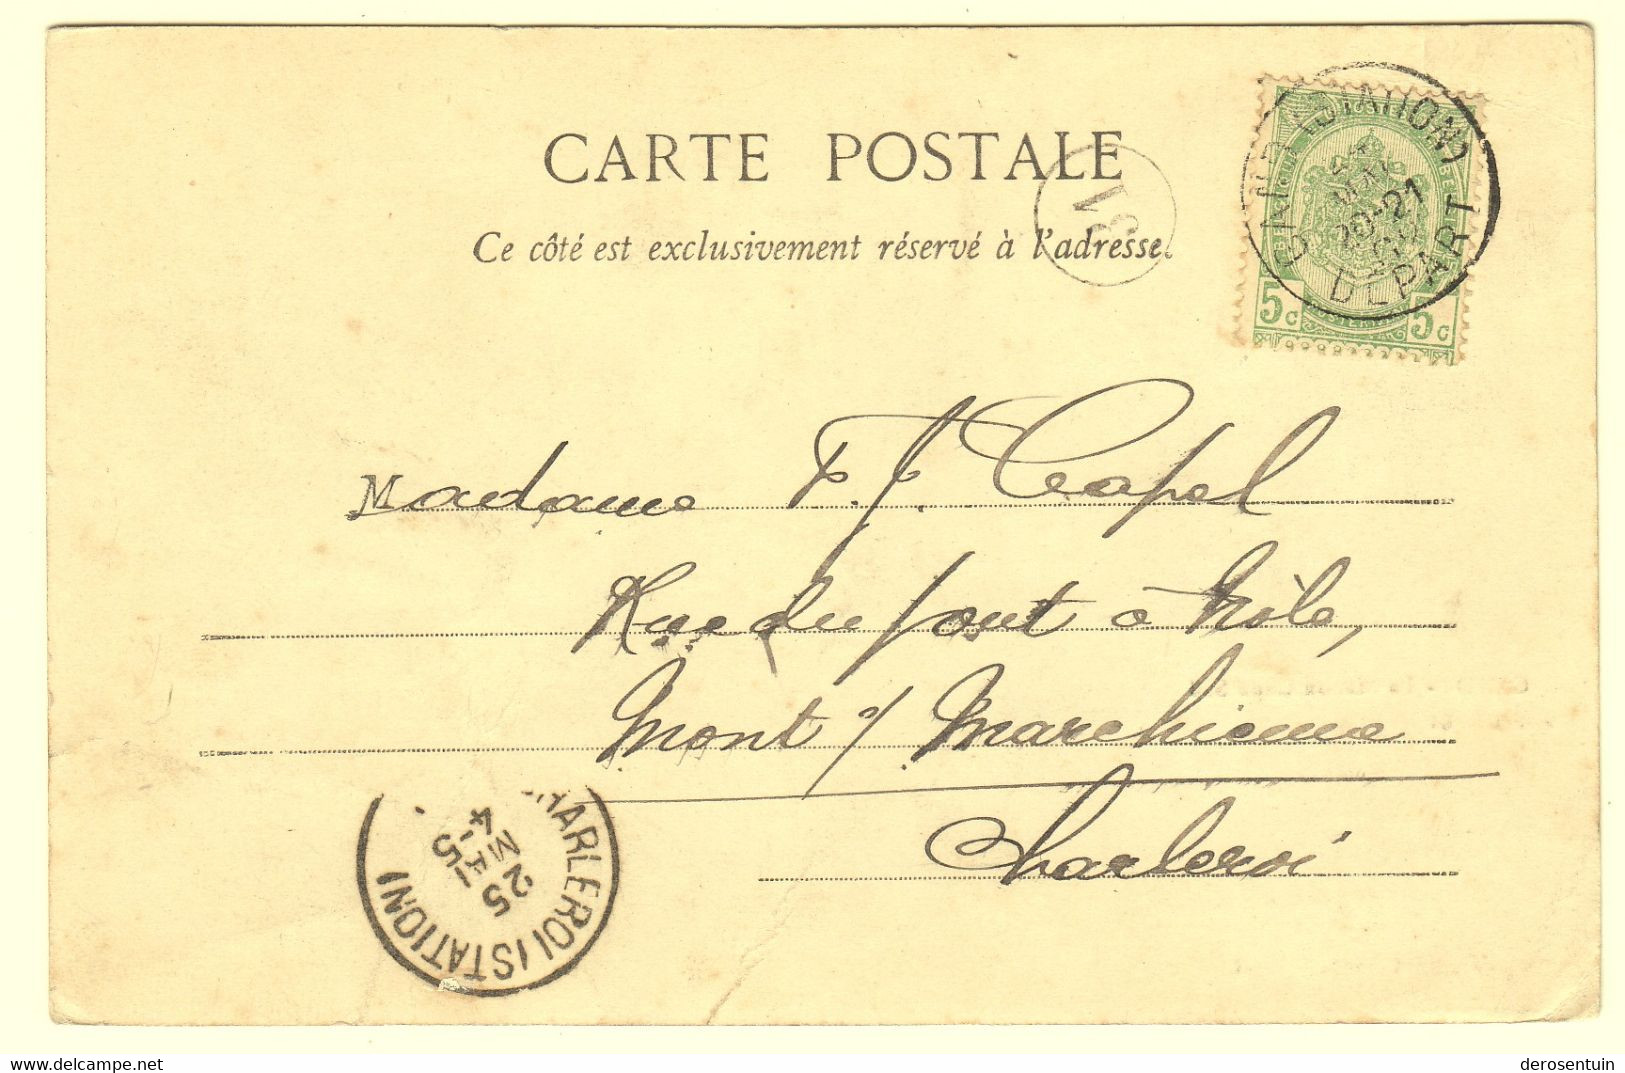 CARTE POSTALE
Ce côté est exclusivement réservé à l'adresse.
31
GAND (STATION)
20-21
DEPART
5c 5c
Madame F. J. Capel
Rue du pont à Nôle,
Mont s/ Marchienne
Charleroi
CHARLEROI (STATION)
4-5
MA
25
5
delcampe.net
derosentuin